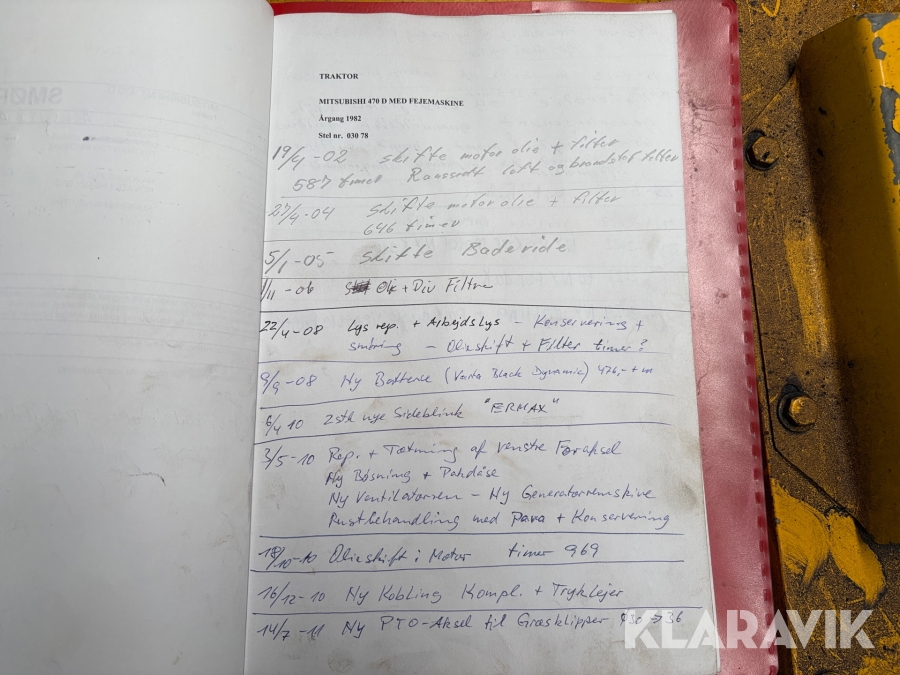 TRAKTOR
MITSUBISHI 470 D MED FEJEMASKINE
Årgang 1982
Stel nr. 030 78
19/4-02 skifte motor olie + filter
587 timer Ransredt luft og brandstof filter
27/4-04 Skifte motor olie + filter
646 timer
5/1-05 Skifte Baderide
1/11-06 Olie + Div Filtre
22/4-08 Lys rep. + Arbejdslys - Konservering +
smöring - Olieskift + Filter timer?
9/9-08 Ny Batterie (Varta Black Dynamic) 476,- + m
6/4 10 2stk nye Sideblink "ERMAX"
3/5-10 Rep. + Tætning af venstre Foraksel
Ny Bösning + Pakdåse
Ny Ventilatorrem - Ny Generatorremskive
Rustbehandling med Pava + Konservering
18/10-10 Olieskift i Motor timer 969
16/12-10 Ny Kobling Kompl. + Tryklejer
14/7-11 Ny PTO-Aksel til Græsklipper
KLARAVIK